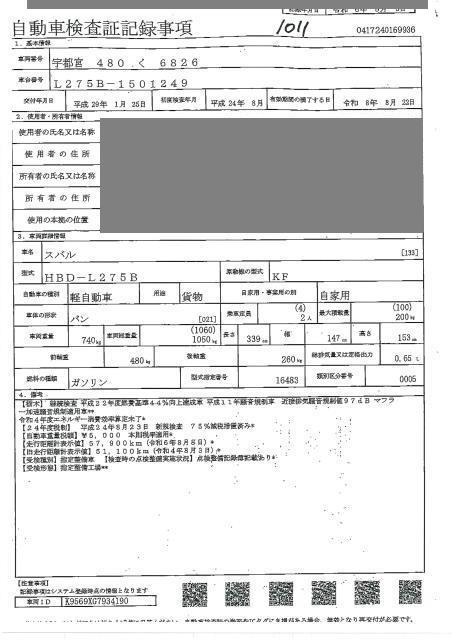 自動車検査証記録事項
1011
0417240169936
1. 基本情報
車両番号 宇都宮 480 く 6826
車台番号 L275B-1501249
交付年月日 平成 29年 1月 25日 初度検査年月 平成 24年 8月 有効期間の満了する日 令和 8年 8月 22日
2. 使用者・所有者情報
使用者の氏名又は名称
使用者の住所
所有者の氏名又は名称
所有者の住所
使用の本拠の位置
3. 車両詳細情報
車名 スバル [133]
型式 HBD-L275B 原動機の型式 KF
自動車の種別 軽自動車 用途 貨物 自家用・事業用の別 自家用
車体の形状 バン [021] 乗車定員 (4) 2人 最大積載量 (100) 200kg
車両重量 740kg 車両総重量 (1060) 1050kg 長さ 339cm 幅 147cm 高さ 153cm
前軸重 480kg 後軸重 260kg 総排気量又は定格出力 0.65L
燃料の種類 ガソリン 型式指定番号 16483 類別区分番号 0005
4. 備考
【栃木】 継続検査 平成22年度燃費基準44%向上達成車 平成11年騒音規制車 近接排気騒音規制値97dB マフラ
ー加速騒音規制適用車**
令和4年度エネルギー消費効率算定未了*
【24年度税制】 平成24年8月23日 新規検査 75%減税措置済み*
【自動車重量税額】 ¥5,000 本則税率適用*
【走行距離計表示値】 57,900km (令和6年8月8日)*
【旧走行距離計表示値】 51,100km (令和4年8月3日)*
【受検種別】 指定整備車 【検査時の点検整備実施状況】 点検整備記録簿記載あり*
【受検形態】 指定整備工場**
【注意事項】
記録事項はシステム登録時点の情報となります
車両ID K9569XG7934190